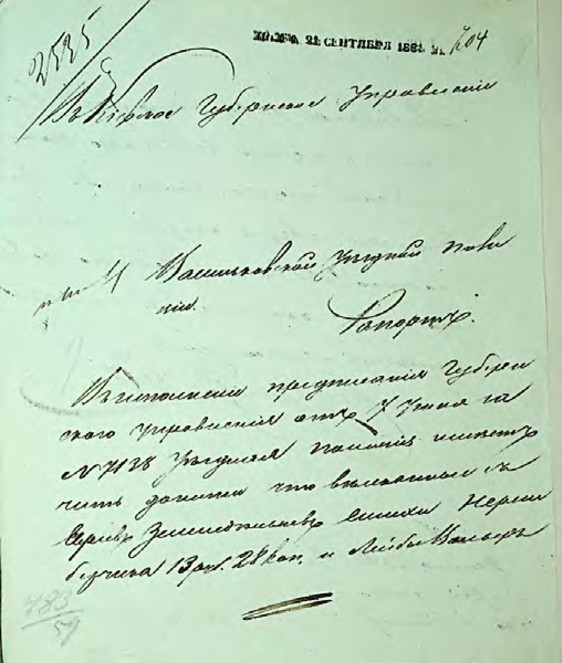 2525
21 СЕНТЯБРЯ 188
704
Въ Кіевское Губернское Управленіе
Васильковской Уѣздной поли
ціи.
Рапортъ.
Въ исполненіи предписанія Губерн
скаго Управленія отъ 7 Іюня за
№ 7138 Уѣздная Полиція имѣетъ
честь донести что взысканныя съ
Евреевъ Земледѣльцевъ
13 руб. 28 коп. и Лейбы
783
59